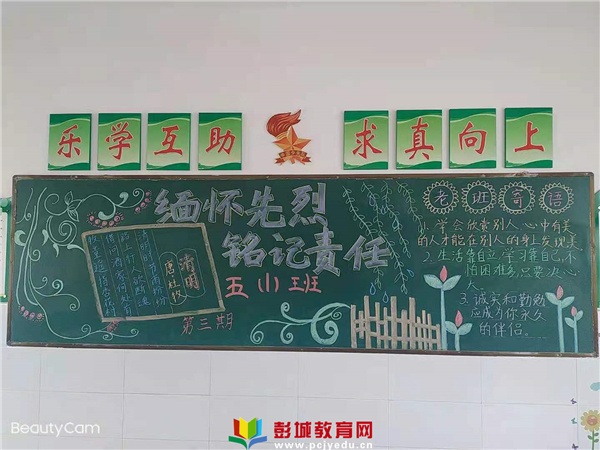 乐学互助
求真向上
缅怀先烈
铭记责任
五(1)班
第三期
清明
唐 杜牧
清明时节雨纷纷
路上行人欲断魂
借问酒家何处有
牧童遥指杏花村
老班寄语
1. 学会欣赏别人,心中有美
的人才能在别人的身上发现美
2. 生活靠自立,学习靠自己,不
怕困难多,只要决心
大
3. 诚实和勤勉
应成为你永久
的伴侣。
BeautyCam
彭城教育网
www.pcjyedu.cn